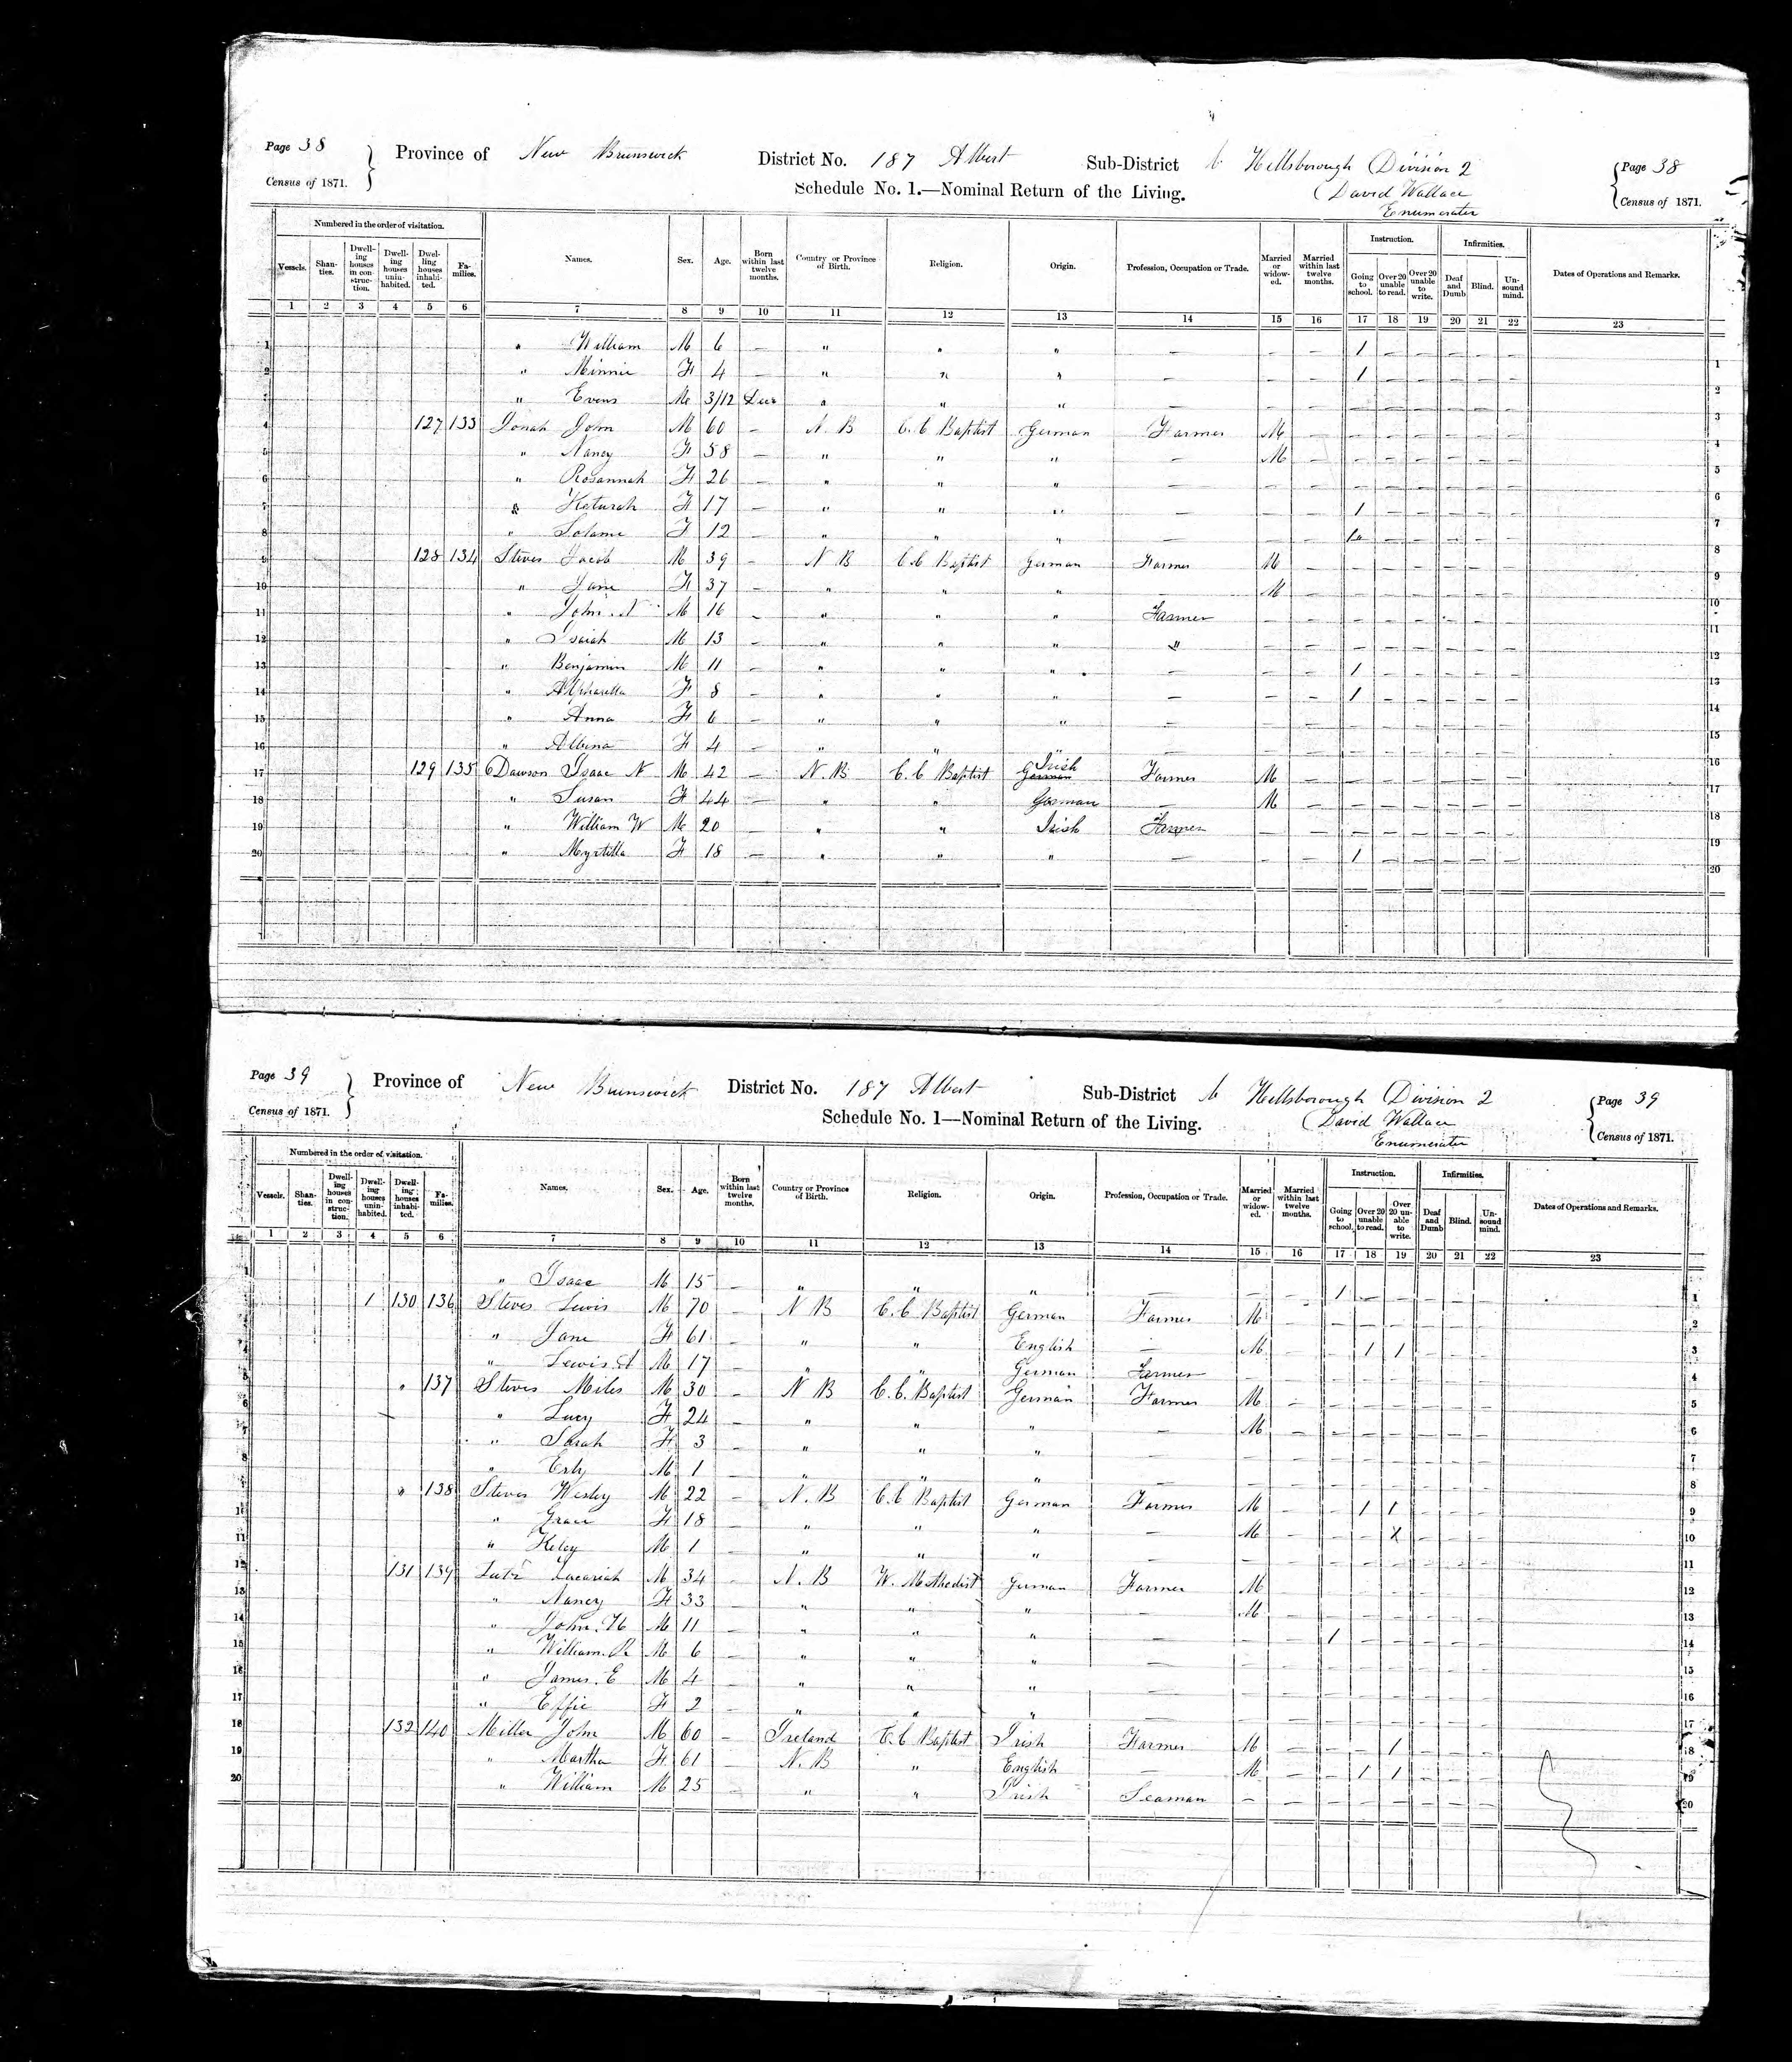 Page 38
Province of New Brunswick District No. 187 Albert Sub-District b Hillsborough Division 2
Page 38
Census of 1871.
Schedule No. 1.—Nominal Return of the Living.
David Wallace
Enumerator
Census of 1871.
Numbered in the order of visitation. Instruction. Infirmities.
Vessels. Shanties. Dwelling houses in construction. Dwelling houses uninhabited. Dwelling houses inhabited. Families. Names. Sex. Age. Born within last twelve months. Country or Province of Birth. Religion. Origin. Profession, Occupation or Trade. Married or widowed. Married within last twelve months. Going to school. Over 20 unable to read. Over 20 unable to write. Deaf and Dumb Blind. Unsound mind. Dates of Operations and Remarks.
1 2 3 4 5 6 7 8 9 10 11 12 13 14 15 16 17 18 19 20 21 22 23
1 " William M 6 — " " " — — — 1 — — — — — 1
2 " Minnie F 4 — " " " — — — 1 — — — — — 2
" Evens M 3/12 " " " — — — — — — — — — 3
4 127 133 Jonah John M 60 — N. B C. C Baptist German Farmer M — — — — — — — 4
5 " Nancy F 58 — " " " — M — — — — — — — 5
6 " Rosannah F 26 — " " " — — — — — — — — — 6
7 " Keturah F 17 — " " " — — — 1 — — — — — 7
8 " Salame F 12 — " " " — — — 1 — — — — — 8
9 128 134 Steves Jacob M 39 — N B C. C Baptist German Farmer M — — — — — — — 9
10 " Jane F 37 — " " " — M — — — — — — — 10
11 " John M 16 — " " " Farmer — — — — — — — — 11
12 " Isaiah M 13 — " " " " — — — — — — — — 12
13 " Benjamin M 11 — " " " — — — 1 — — — — — 13
14 " Alpharetta F 8 — " " " — — — 1 — — — — — 14
15 " Anna F 6 — " " " — — — — — — — — — 15
16 " Albina F 4 — " " " — — — — — — — — — 16
17 129 135 Dawson Isaac N M 42 — N. B C. C Baptist German Irish Farmer M — — — — — — — 17
18 " Susan F 44 — " " German — M — — — — — — — 18
19 " William W M 20 — " " Irish Farmer — — — — — — — — 19
20 " Myrtilla F 18 — " " " — — — 1 — — — — — 20
Page 39
Province of New Brunswick District No. 187 Albert Sub-District b Hillsborough Division 2
Page 39
Census of 1871.
Schedule No. 1—Nominal Return of the Living.
David Wallace
Enumerator
Census of 1871.
Numbered in the order of visitation. Instruction. Infirmities.
Vessels. Shanties. Dwelling houses in construction. Dwelling houses uninhabited. Dwelling houses inhabited. Families. Names. Sex. Age. Born within last twelve months. Country or Province of Birth. Religion. Origin. Profession, Occupation or Trade. Married or widowed. Married within last twelve months. Going to school. Over 20 unable to read. Over 20 unable to write. Deaf and Dumb Blind. Unsound mind. Dates of Operations and Remarks.
1 2 3 4 5 6 7 8 9 10 11 12 13 14 15 16 17 18 19 20 21 22 23
" Isaac M 15 — " " " — — — 1 — — — — — 1
1 130 136 Steves Lewis M 70 — N B C. C Baptist German Farmer M — — — — — — — 2
" Jane F 61 — " " English — M — — 1 1 — — — 3
" Lewis A M 17 — " " German Farmer — — — — — — — — 4
5 " 137 Steves Miles M 30 — N B C. C. Baptist German Farmer M — — — — — — — 5
6 " Lucy F 24 — " " " — M — — — — — — — 6
7 " Sarah F 3 — " " " — — — — — — — — — 7
8 " M 1 — " " " — — — — — — — — — 8
" 138 Steves Wesley M 22 — N. B C. C Baptist German Farmer M — — 1 1 — — — 9
10 " Grace F 18 — " " " — M — — — X — — — 10
11 " M 1 — " " " — — — — — — — — — 11
12 131 139 Lutz Zacariah M 34 — N. B W. Methodist German Farmer M — — — — — — — 12
13 " Nancy F 33 — " " " — M — — — — — — — 13
14 " John. H M 11 — " " " — — — 1 — — — — — 14
15 " William. R M 6 — " " " — — — — — — — — — 15
16 " James. E M 4 — " " " — — — — — — — — — 16
17 " Effie F 2 — " " " — — — — — — — — — 17
18 132 140 Miller John M 60 — Ireland C. C Baptist Irish Farmer M — — — 1 — — — 18
19 " Martha F 61 — N. B " English — M — — 1 1 — — — 19
20 " William M 25 — " " Irish Seaman — — — — — — — — 20